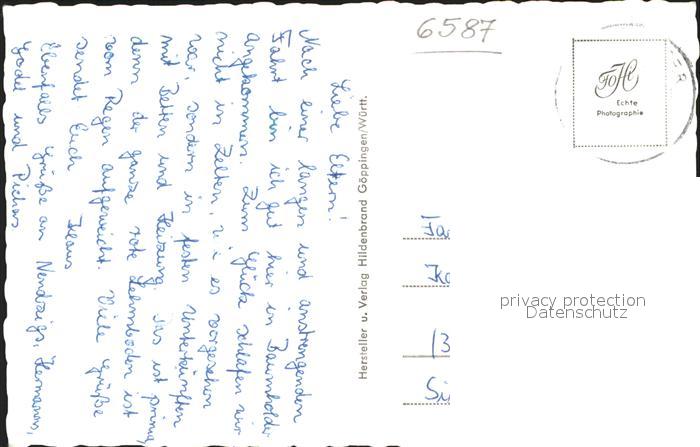 6587
Liebe Eltern!
Nach einer langen und anstrengenden
Fahrt bin ich gut hier in Baumholder
angekommen. Zum Glück schlafen wir
nicht in Zelten, wie es vorgesehen
war, sondern in festen Unterkünften
mit Betten und Heizung. Das ist prima,
denn der ganze rote Lehmboden ist
vom Regen aufgeweicht. Viele Grüße
sendet Euch Klaus
Ebenfalls Grüße an Hermanns,
und
Hersteller u. Verlag Hildenbrand Göppingen/Württ.
Echte
Photographie
Fa
13
Si
privacy protection
Datenschutz